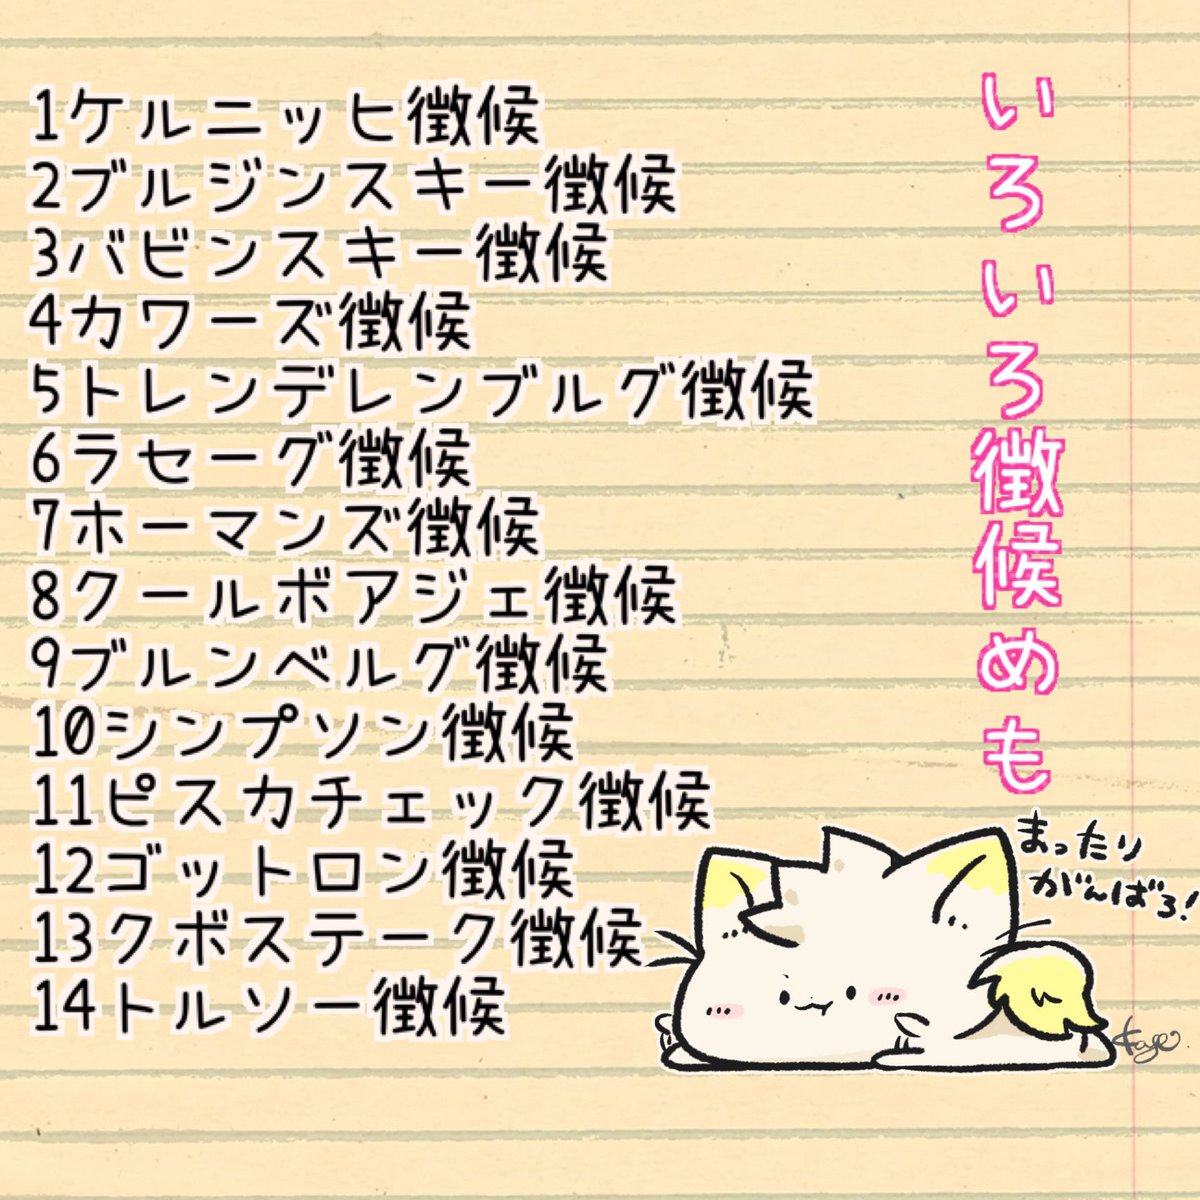 いろいろ徴候めも
1ケルニッヒ徴候
2ブルジンスキー徴候
3バビンスキー徴候
4カワーズ徴候
5トレンデレンブルグ徴候
6ラセーグ徴候
7ホーマンズ徴候
8クールボアジェ徴候
9ブルンベルグ徴候
10シンプソン徴候
11ピスカチェック徴候
12ゴットロン徴候
13クボステーク徴候
14トルソー徴候
まったり
がんばろ!